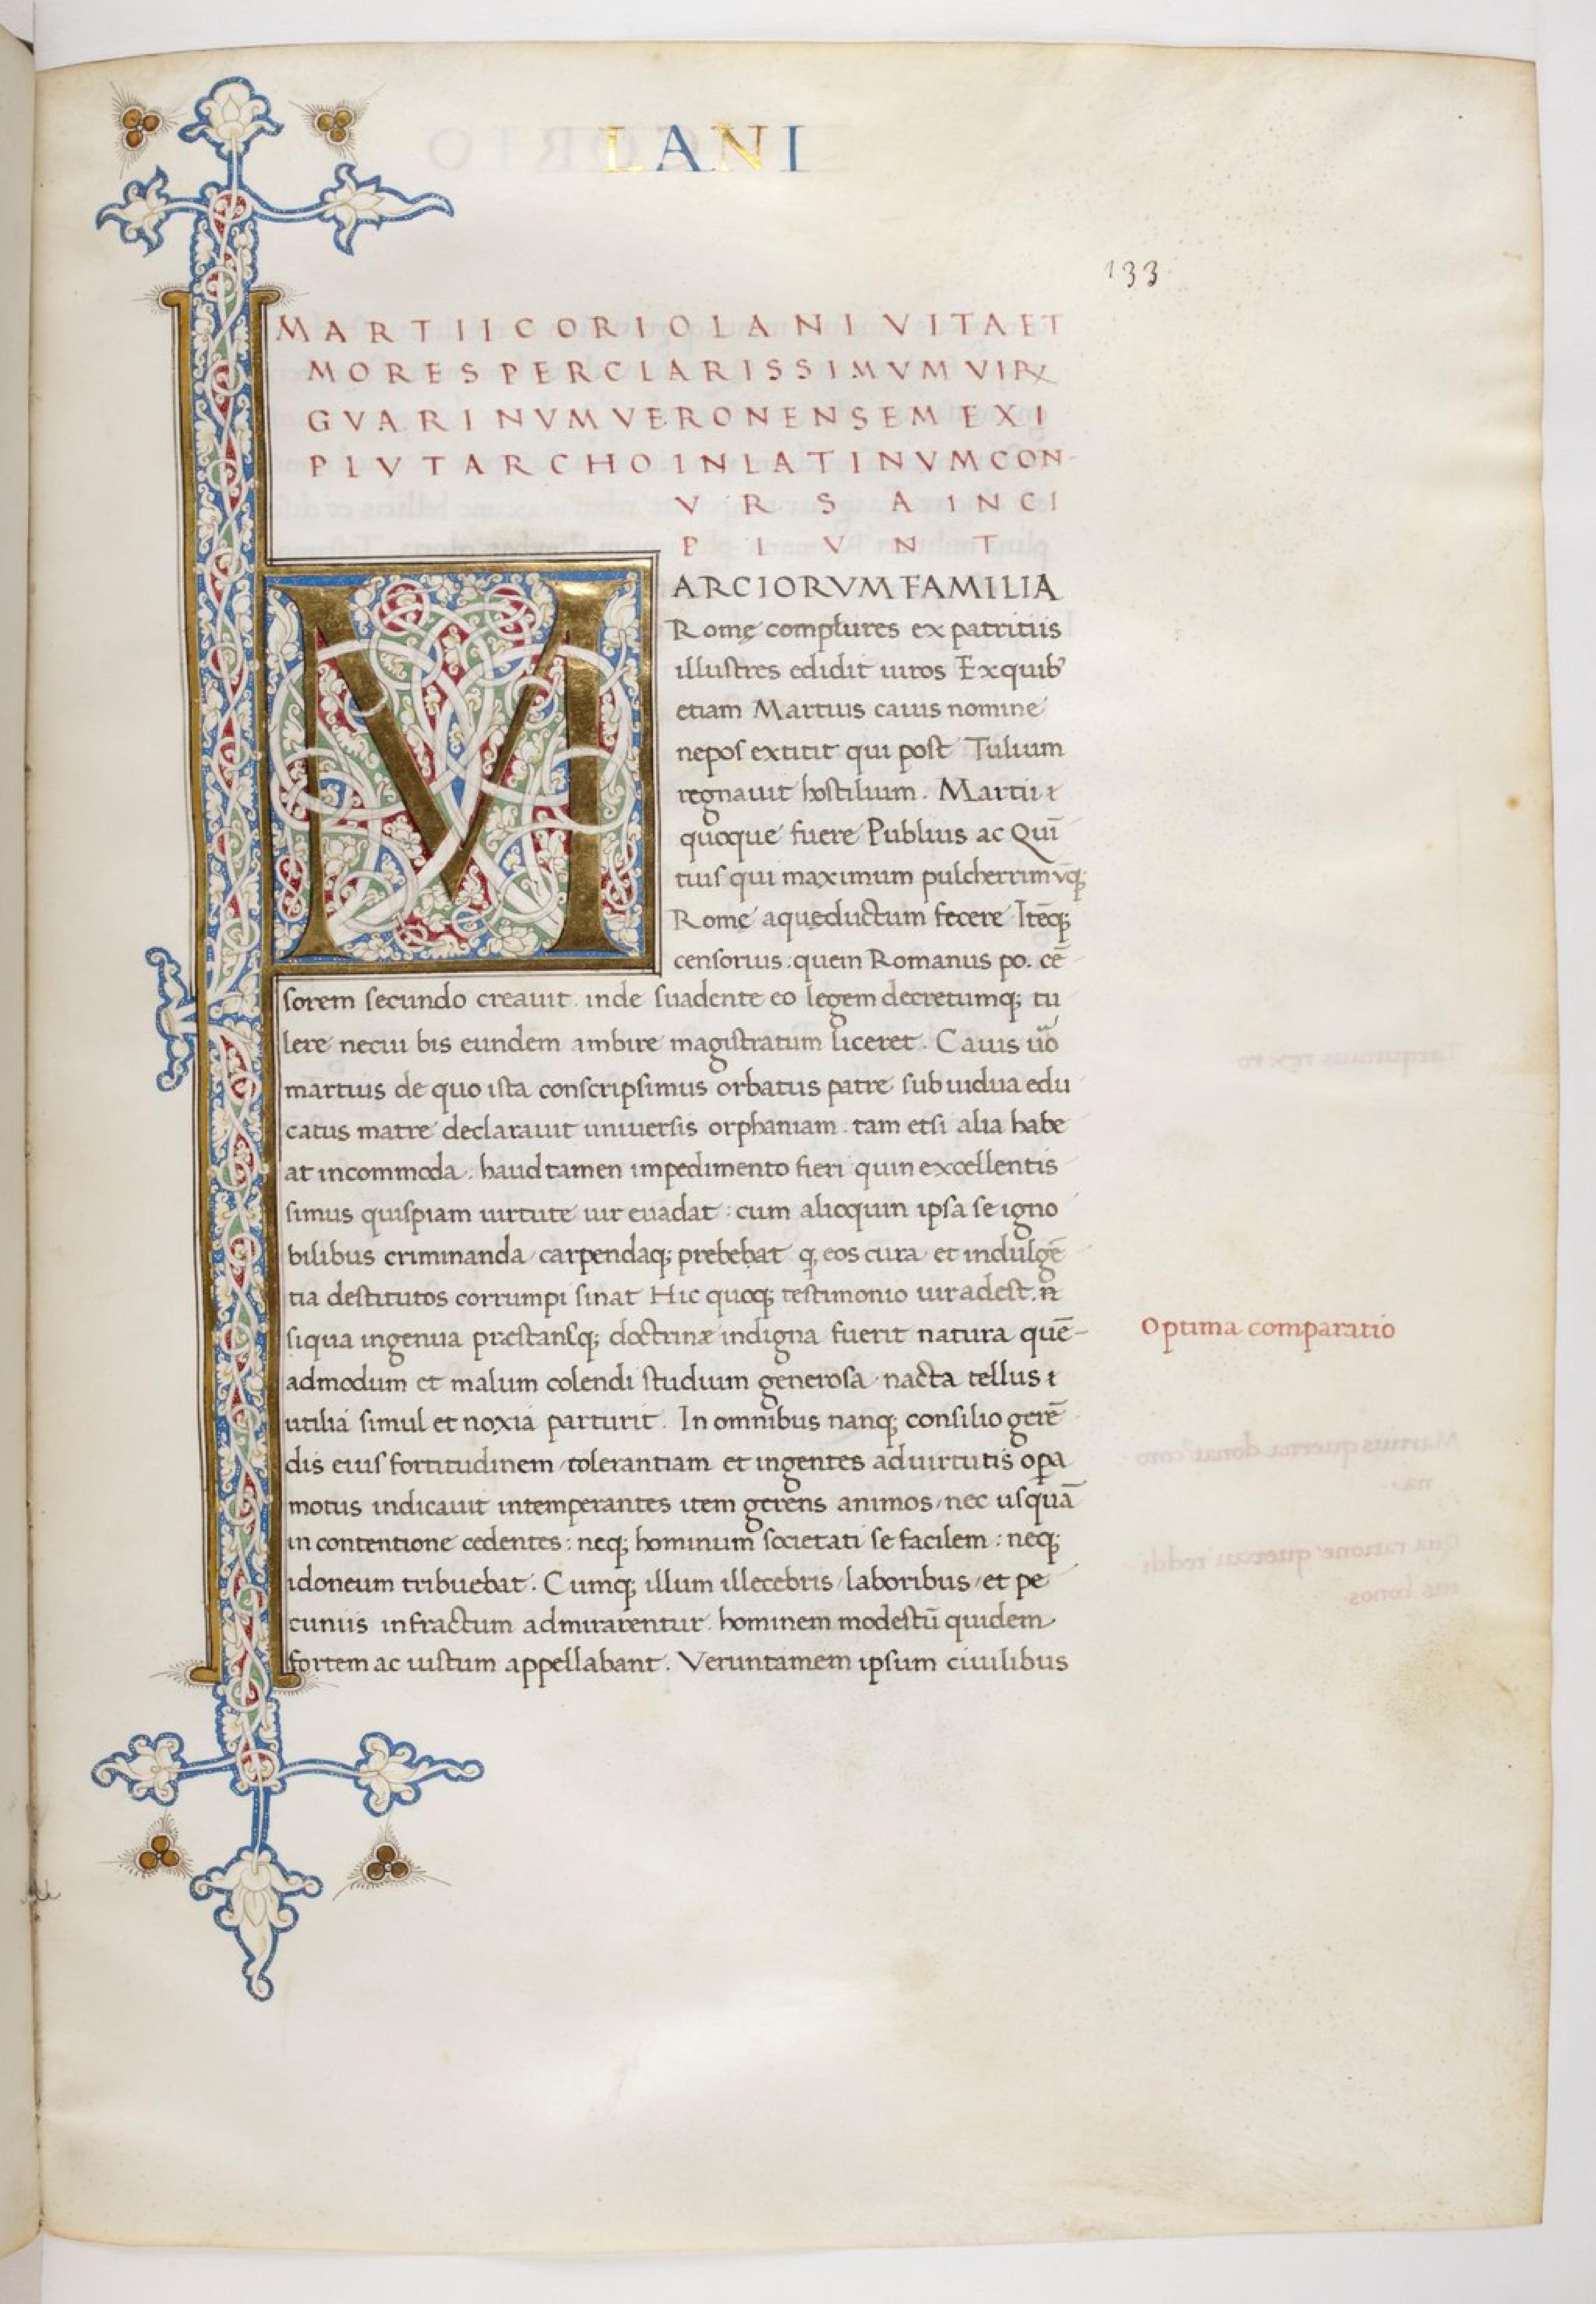 LANI
133
MARTII CORIOLANI VITA ET
MORES PER CLARISSIMVM VIRꝜ
GVARINVM VERONENSEM EX I
PLVTARCHO IN LATINVM CON-
VRSA INCI
PIVNT
MARCIORVM FAMILIA
Romę complures ex patritiis
illustres edidit uiros Ex quibꝰ
etiam Martius caius nomine
nepos extitit qui post Tulium
regnauit hostilium. Martii &
quoque fuere Publius ac Qui̅
tius qui maximum pulcherrimūq;
Romę aquęductum fecere Ite̅q;
censorius: quem Romanus po. ce̅
sorem secundo creauit. inde suadente eo legem decretumq; tu
lere necui bis eundem ambire magistratum liceret. Caius uo̅
martius de quo ista conscripsimus orbatus patre sub uidua edu
catus matre declarauit uniuersis orphaniam. tam etsi alia habe
at incommoda. haud tamen impedimento fieri quin excellentis
simus quispiam uirtute uir euadat: cum alioquin ipsa se igno
bilibus criminanda carpendaq; prebebat ꝙ eos cura et indulge̅
tia destitutos corrumpi sinat Hic quoq; testimonio uir adest. n̅
siqua ingenua præstansq; doctrinæ indigna fuerit natura que̅-
admodum et malum colendi studium generosa nacta tellus &
utilia simul et noxia parturit. In omnibus nanq; consilio gere̅
dis eius fortitudinem tolerantiam et ingentes ad uirtutis oꝑa
motus indicauit intemperantes item gerens animos nec usqua̅
in contentione cedentes: neq; hominum societati se facilem: neq;
idoneum tribuebat. Cumq; illum illecebris laboribus et pe
cuniis infractum admirarentur. hominem modestu̅ quidem
fortem ac iustum appellabant. Veruntamem ipsum ciuilibus
Optima comparatio